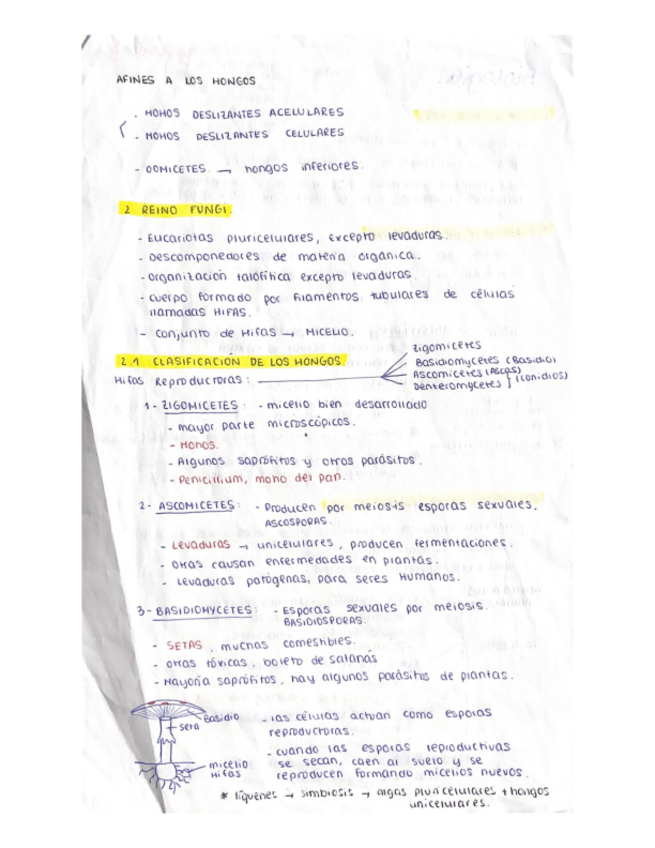 AFINES A LOS HONGOS
. MOHOS DESLIZANTES ACELULARES
- MOHOS DESLIZANTES CELULARES
- OOMICETES → hongos inferiores.
2 REINO FUNGI.
- Eucariotas pluricelulares, excepto levaduras.
- Descomponedores de materia orgánica.
- organización talofítica excepto levaduras.
- cuerpo formado por filamentos tubulares de células
llamadas HIFAS.
- conjunto de Hifas → MICELIO.
2.1 CLASIFICACIÓN DE LOS HONGOS
Hifas Reproductoras:
Zigomicetes
Basidiomycetes (Basidio)
Ascomicetes (Ascas)
Deuteromycetes } (conidios)
1- ZIGOMICETES: - micelio bien desarrollado
- mayor parte microscópicos.
- Mohos.
- Algunos saprófitos y otros parásitos.
- Penicillium, moho del pan.
2- ASCOMICETES: - Producen por meiosis esporas sexuales,
ASCOSPORAS.
- Levaduras → unicelulares, producen fermentaciones.
- otras causan enfermedades en plantas.
- Levaduras patógenas, para seres Humanos.
3- BASIDIOMYCETES: - Esporas sexuales por meiosis.
BASIDIOSPORAS.
- SETAS, muchas comestibles.
- otras tóxicas, boleto de satanás
- Mayoría saprófitos, hay algunos parásitos de plantas.
Basidio
seta
micelio
Hifas
- las células actúan como esporas
reproductoras.
- cuando las esporas reproductivas
se secan, caen al suelo y se
reproducen formando micelios nuevos.
* líquenes → simbiosis → algas pluricelulares + hongos
unicelulares.